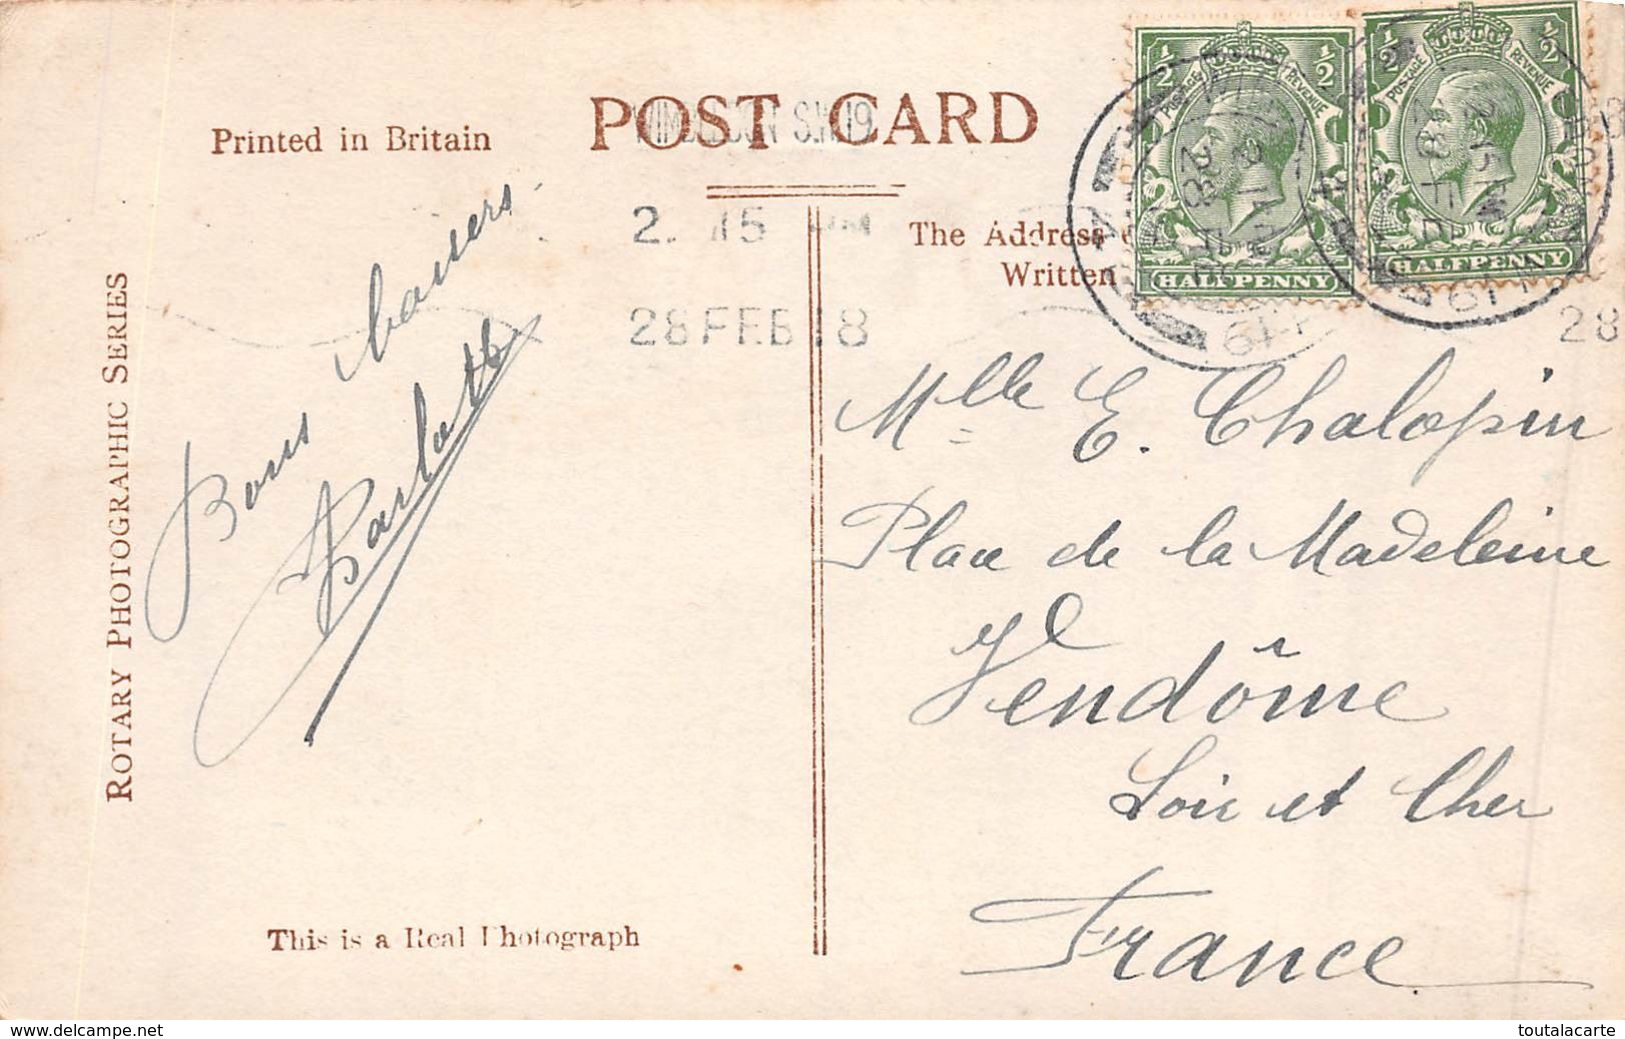 POST CARD
Printed in Britain
WIMBLEDON S.W.19
2. 15 PM
28 FEB 18
The Address
Written
½ ½
POSTAGE REVENUE
HALFPENNY
½ ½
POSTAGE REVENUE
HALFPENNY
28
ROTARY PHOTOGRAPHIC SERIES
Bons baisers
Mlle E. Chalopin
Place de la Madeleine
Vendôme
Loir et Cher
France
This is a Real Photograph
www.delcampe.net
toutalacarte